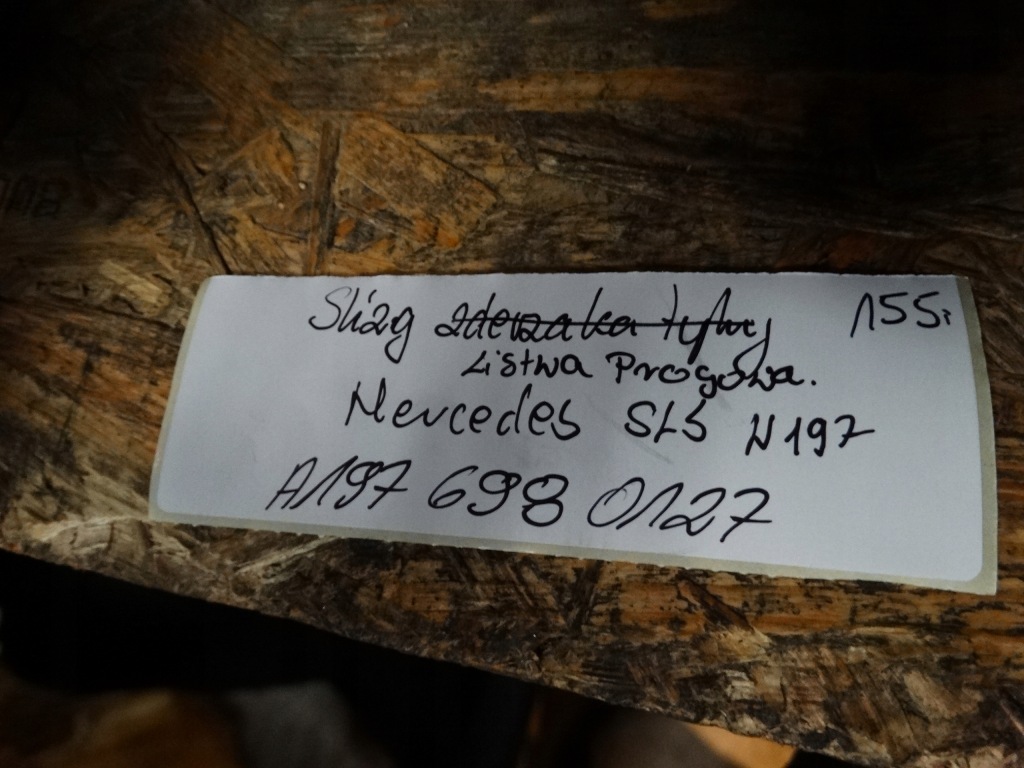 Ślizg zderzaka tylny 155;
Listwa Progowa.
Mercedes SLS W197
A197 698 0127